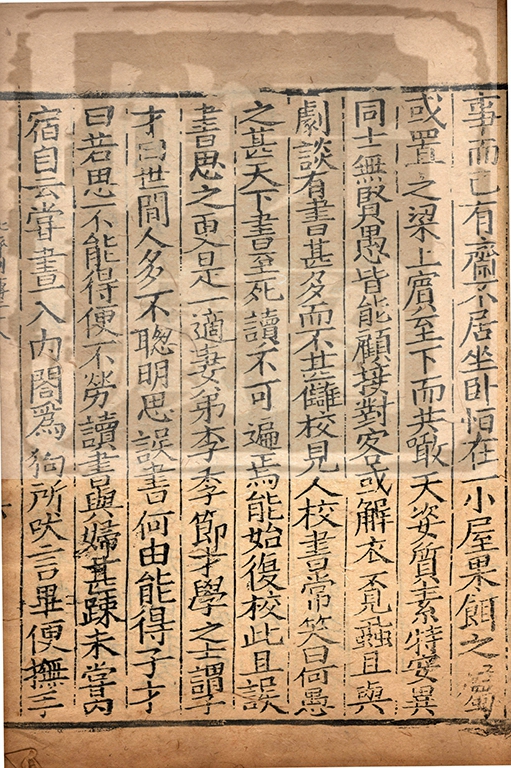 事而已有齋不居坐卧恒在一小屋果餌之屬
或置之梁上賓至下而共噉天姿質素特安異
同士無賢愚皆能顧接對客或解衣覓蝨且與
劇談有書甚多而不甚讎校見人校書常笑曰何愚
之甚天下書至死讀不可遍焉能始復校此且誤
書思之更是一適妻弟李季節才學之士謂子
才曰世間人多不聰明思誤書何由能得子才
曰若思不能得便不勞讀書與婦甚疎未嘗內
宿自云嘗晝入內閤為狗所吠言畢便撫手